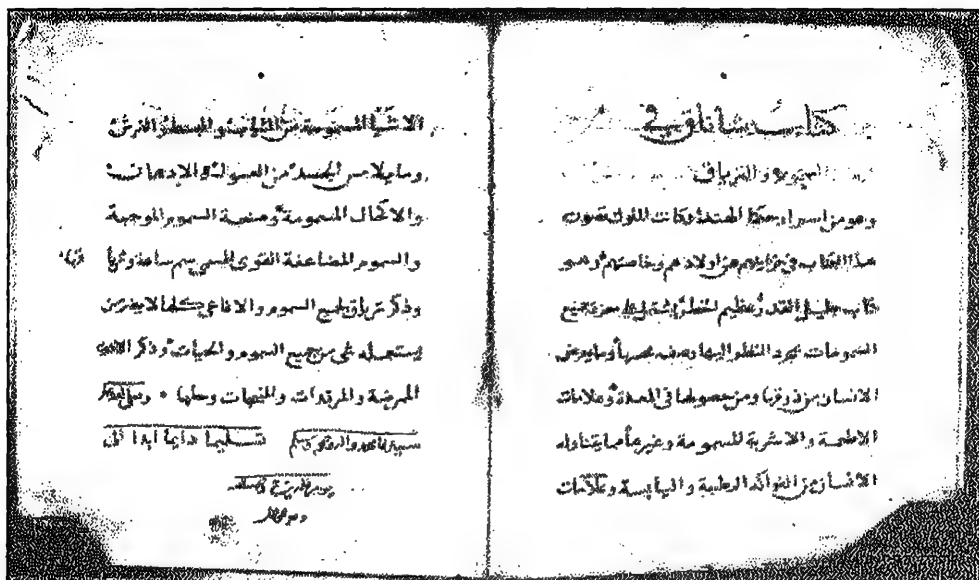 كتاب شاناق في
السموم والترياق
وهو من اسرار حكما الهند وكانت الملوك تصون
هذا الكتاب في خزاينهم عن اولادهم وخاصتهم وهو
كتاب جليل القدر عظيم الخطر يشتمل على معرفة جميع
السمومات بمجرد النظر اليها وصفه وما يعرض
الانسان من ذوقها ومن حصولها في المعدة وعلامات
الاطعمة والاشربة المسمومة وغيرها مما يتناوله
الانسان من الفواكه الرطبة واليابسة وعلامات
الاشيا المسمومة من الثياب والبسط والفرش
وما يلامس الجسد من الغسولات والادهانات
والاكحال المسمومة وصنعة السموم الموجبة
والسموم المضاعفة القوى المسمى سم ساعة
وذكر ترياق لجميع السموم والافاعي كلها لا يضر من
يستعمله شي من جميع السموم والحيات وذكر
الممرضة والمرقدات والمنبهات وحلها وصلى الله
سيدنا محمد وسلم تسليما دايما ابدا